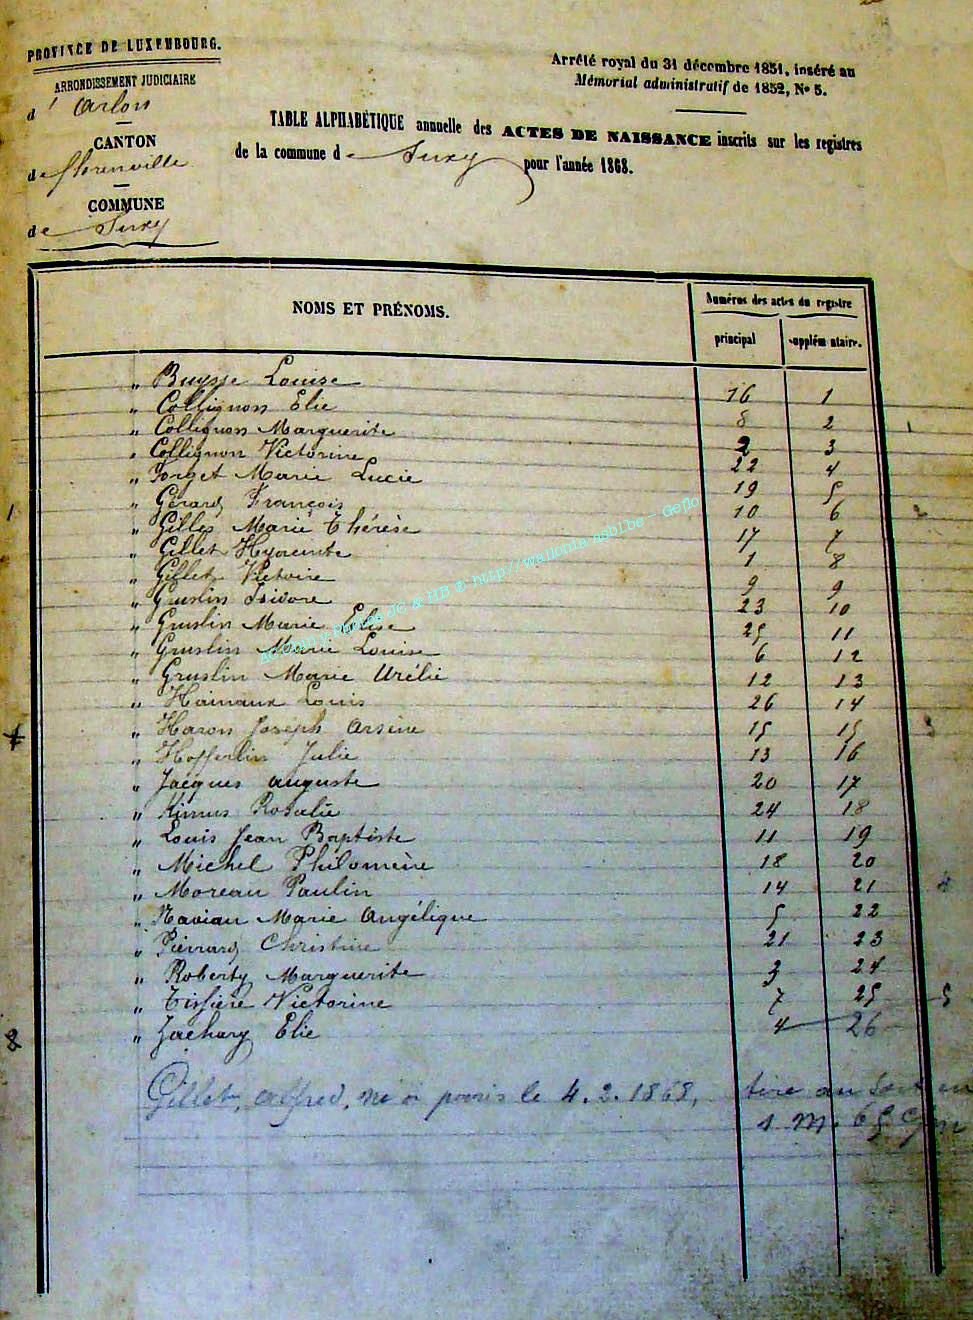 PROVINCE DE LUXEMBOURG.
ARRONDISSEMENT JUDICIAIRE
d' Arlon
CANTON
de Florenville
COMMUNE
de Suxy
Arrêté royal du 31 décembre 1851, inséré au
Mémorial administratif de 1852, No 5.
TABLE ALPHABÉTIQUE annuelle des ACTES DE NAISSANCE inscrits sur les registres
de la commune de Suxy pour l'année 1868.
NOMS ET PRÉNOMS.
Numéros des actes du registre
principal supplémentaire.
" Buysse Louise 16 1
" Collignon Elie 8 2
" Collignon Marguerite 2 3
" Collignon Victorine 22 4
" Forget Marie Lucie 19 5
" Gérard François 10 6
" Gilles Marie Thérèse 17 7
" Gillet Hyacinte 1 8
" Gillet Victoire 9 9
" Gruslin Isidore 23 10
" Gruslin Marie Elise 25 11
" Gruslin Marie Louise 6 12
" Gruslin Marie Urélie 12 13
" Hainaux Louis 26 14
" Haron Joseph Arsène 15 15
" Hofferlin Julie 13 16
" Jacques Auguste 20 17
" Kimus Rosalie 24 18
" Louis Jean Baptiste 11 19
" Michel Philomène 18 20
" Moreau Paulin 14 21
" Naviau Marie Angélique 5 22
" Pierrard Christine 21 23
" Roberty Marguerite 3 24
" Tissière Victorine 7 25
" Zachary Elie 4 26
Gillet, Alfred, né à paris le 4.2.1868, tire au Sort